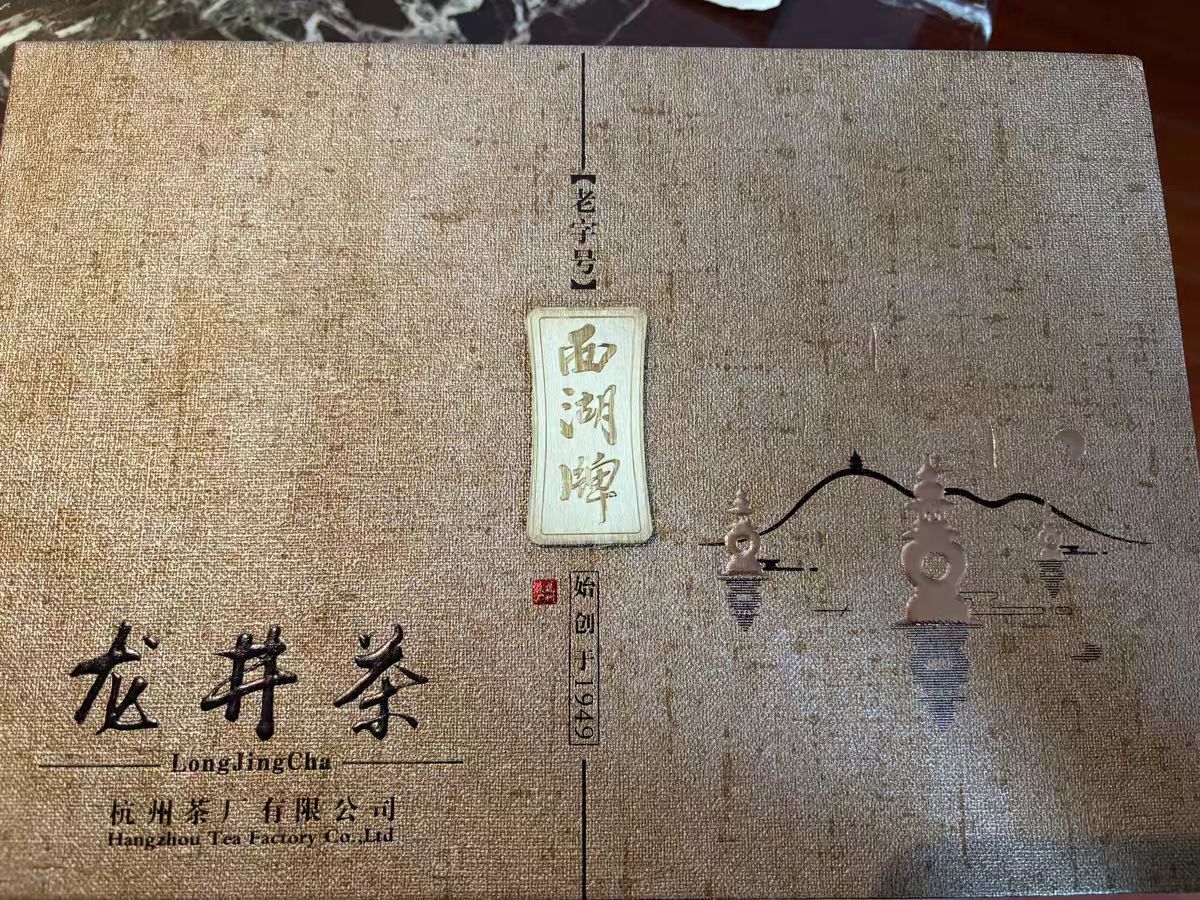 【老字号】
西湖牌
始创于1949
龙井茶
LongJingCha
杭州茶厂有限公司
Hangzhou Tea Factory Co.,Ltd